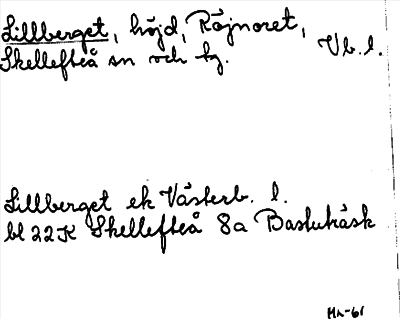 Lillberget, höjd, Röjnoret,
Skellefteå sn och tg. Vb. l.
Lillberget ek Västerb. l.
bl 22K Skellefteå 8a Bastuträsk
Mh-61